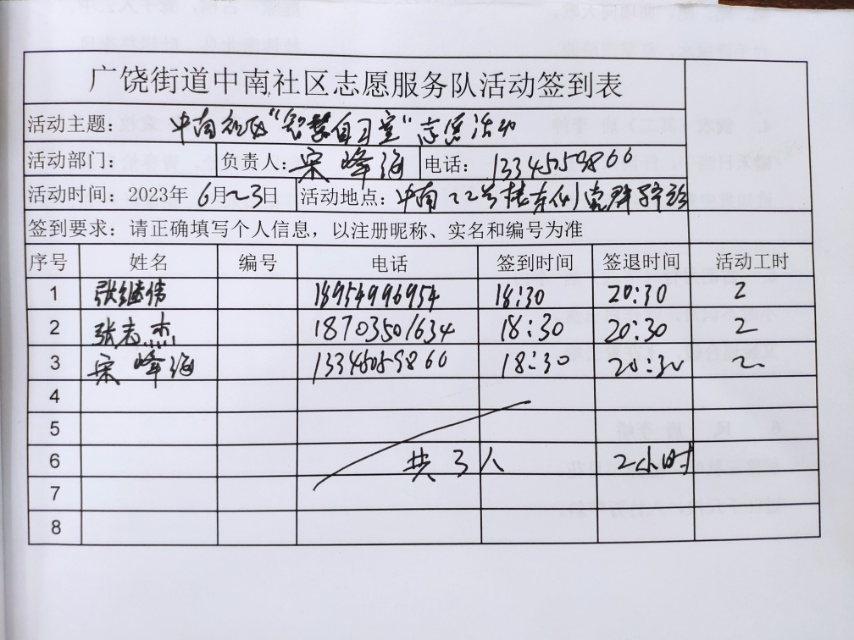 广饶街道中南社区志愿服务队活动签到表
活动主题： 中南社区“智慧自习室”志愿活动
活动部门： 负责人：宋峰海 电话：13345059866
活动时间：2023年 6月23日 活动地点：中南22号楼东侧党群驿站
签到要求：请正确填写个人信息，以注册昵称、实名和编号为准
序号 姓名 编号 电话 签到时间 签退时间 活动工时
1 张继伟 18954996954 18:30 20:30 2
2 张志杰 18703501634 18:30 20:30 2
3 宋峰海 13345059866 18:30 20:30 2
4
5
6 共3人 2小时
7
8